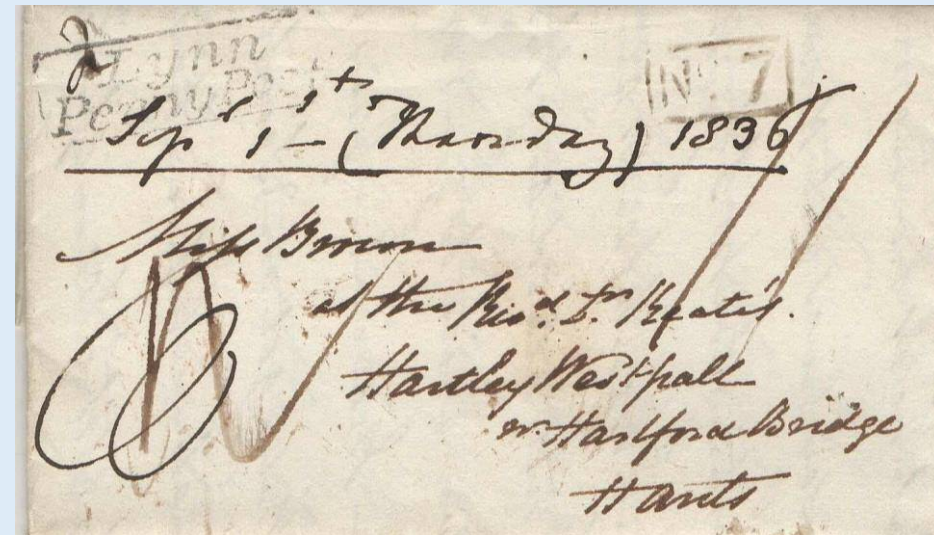 2
Lynn
Penny Post
No. 7
Sept 1st - (Thursday) 1836
Miss Brown
at the Revd. Dr. Keate's.
Hartley Westpall
nr. Hartford Bridge
Hants